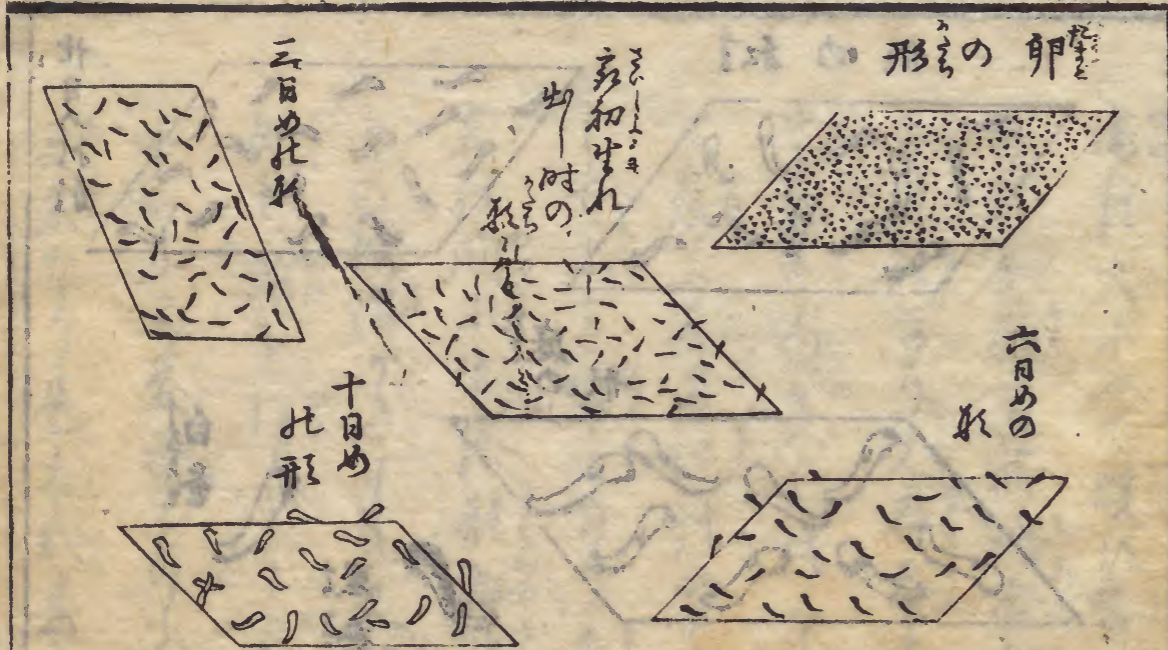 卵の形
最初生れ
出し時の
形
三日め北形
六日めの
形
十日め
北形